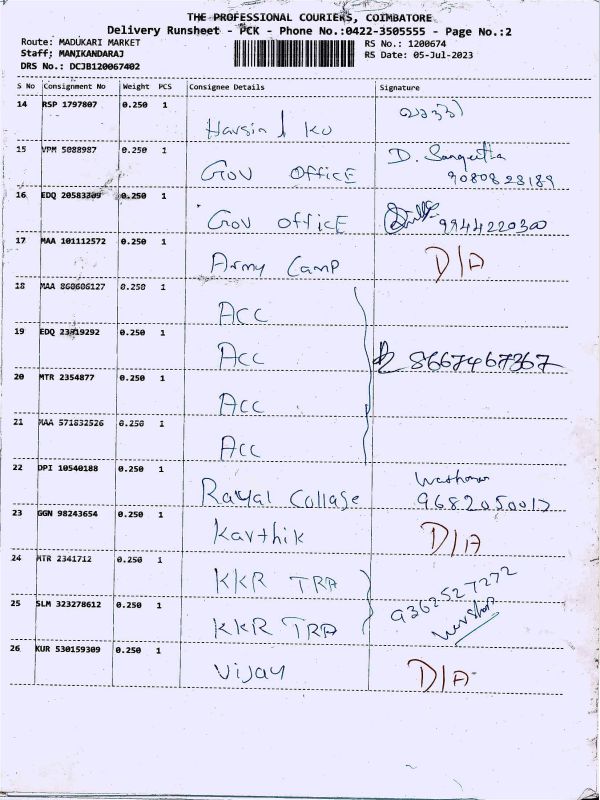 THE PROFESSIONAL COURIERS, COIMBATORE
Delivery Runsheet - PCK - Phone No.:0422-3505555 - Page No.:2
Route: MADUKARI MARKET RS No.: 1200674
Staff; MANIKANDARAJ RS Date: 05-Jul-2023
DRS No.: DCJB120067402
S No Consignment No Weight PCS Consignee Details Signature
14 RSP 1797807 0.250 1
15 VPM 5088987 0.250 1 D. Sangeetha
Gov OFFICE 9080828189
16 EDQ 20583809 0.250 1
Gov OFFICE 9944220300
17 MAA 101112572 0.250 1
Army Camp D/A
18 MAA 860606127 0.250 1
Acc
19 EDQ 23719292 0.250 1
Acc 8667467367
20 MTR 2354877 0.250 1
Acc
21 MAA 571832526 0.250 1
Acc
22 DPI 10540188 0.250 1
Rayal Collage 9682050017
23 GGN 98243654 0.250 1
Karthik D/A
24 MTR 2341712 0.250 1
KKR TRA 9362527272
25 SLM 323278612 0.250 1
KKR TRA
26 KUR 530159309 0.250 1
Vijay D/A